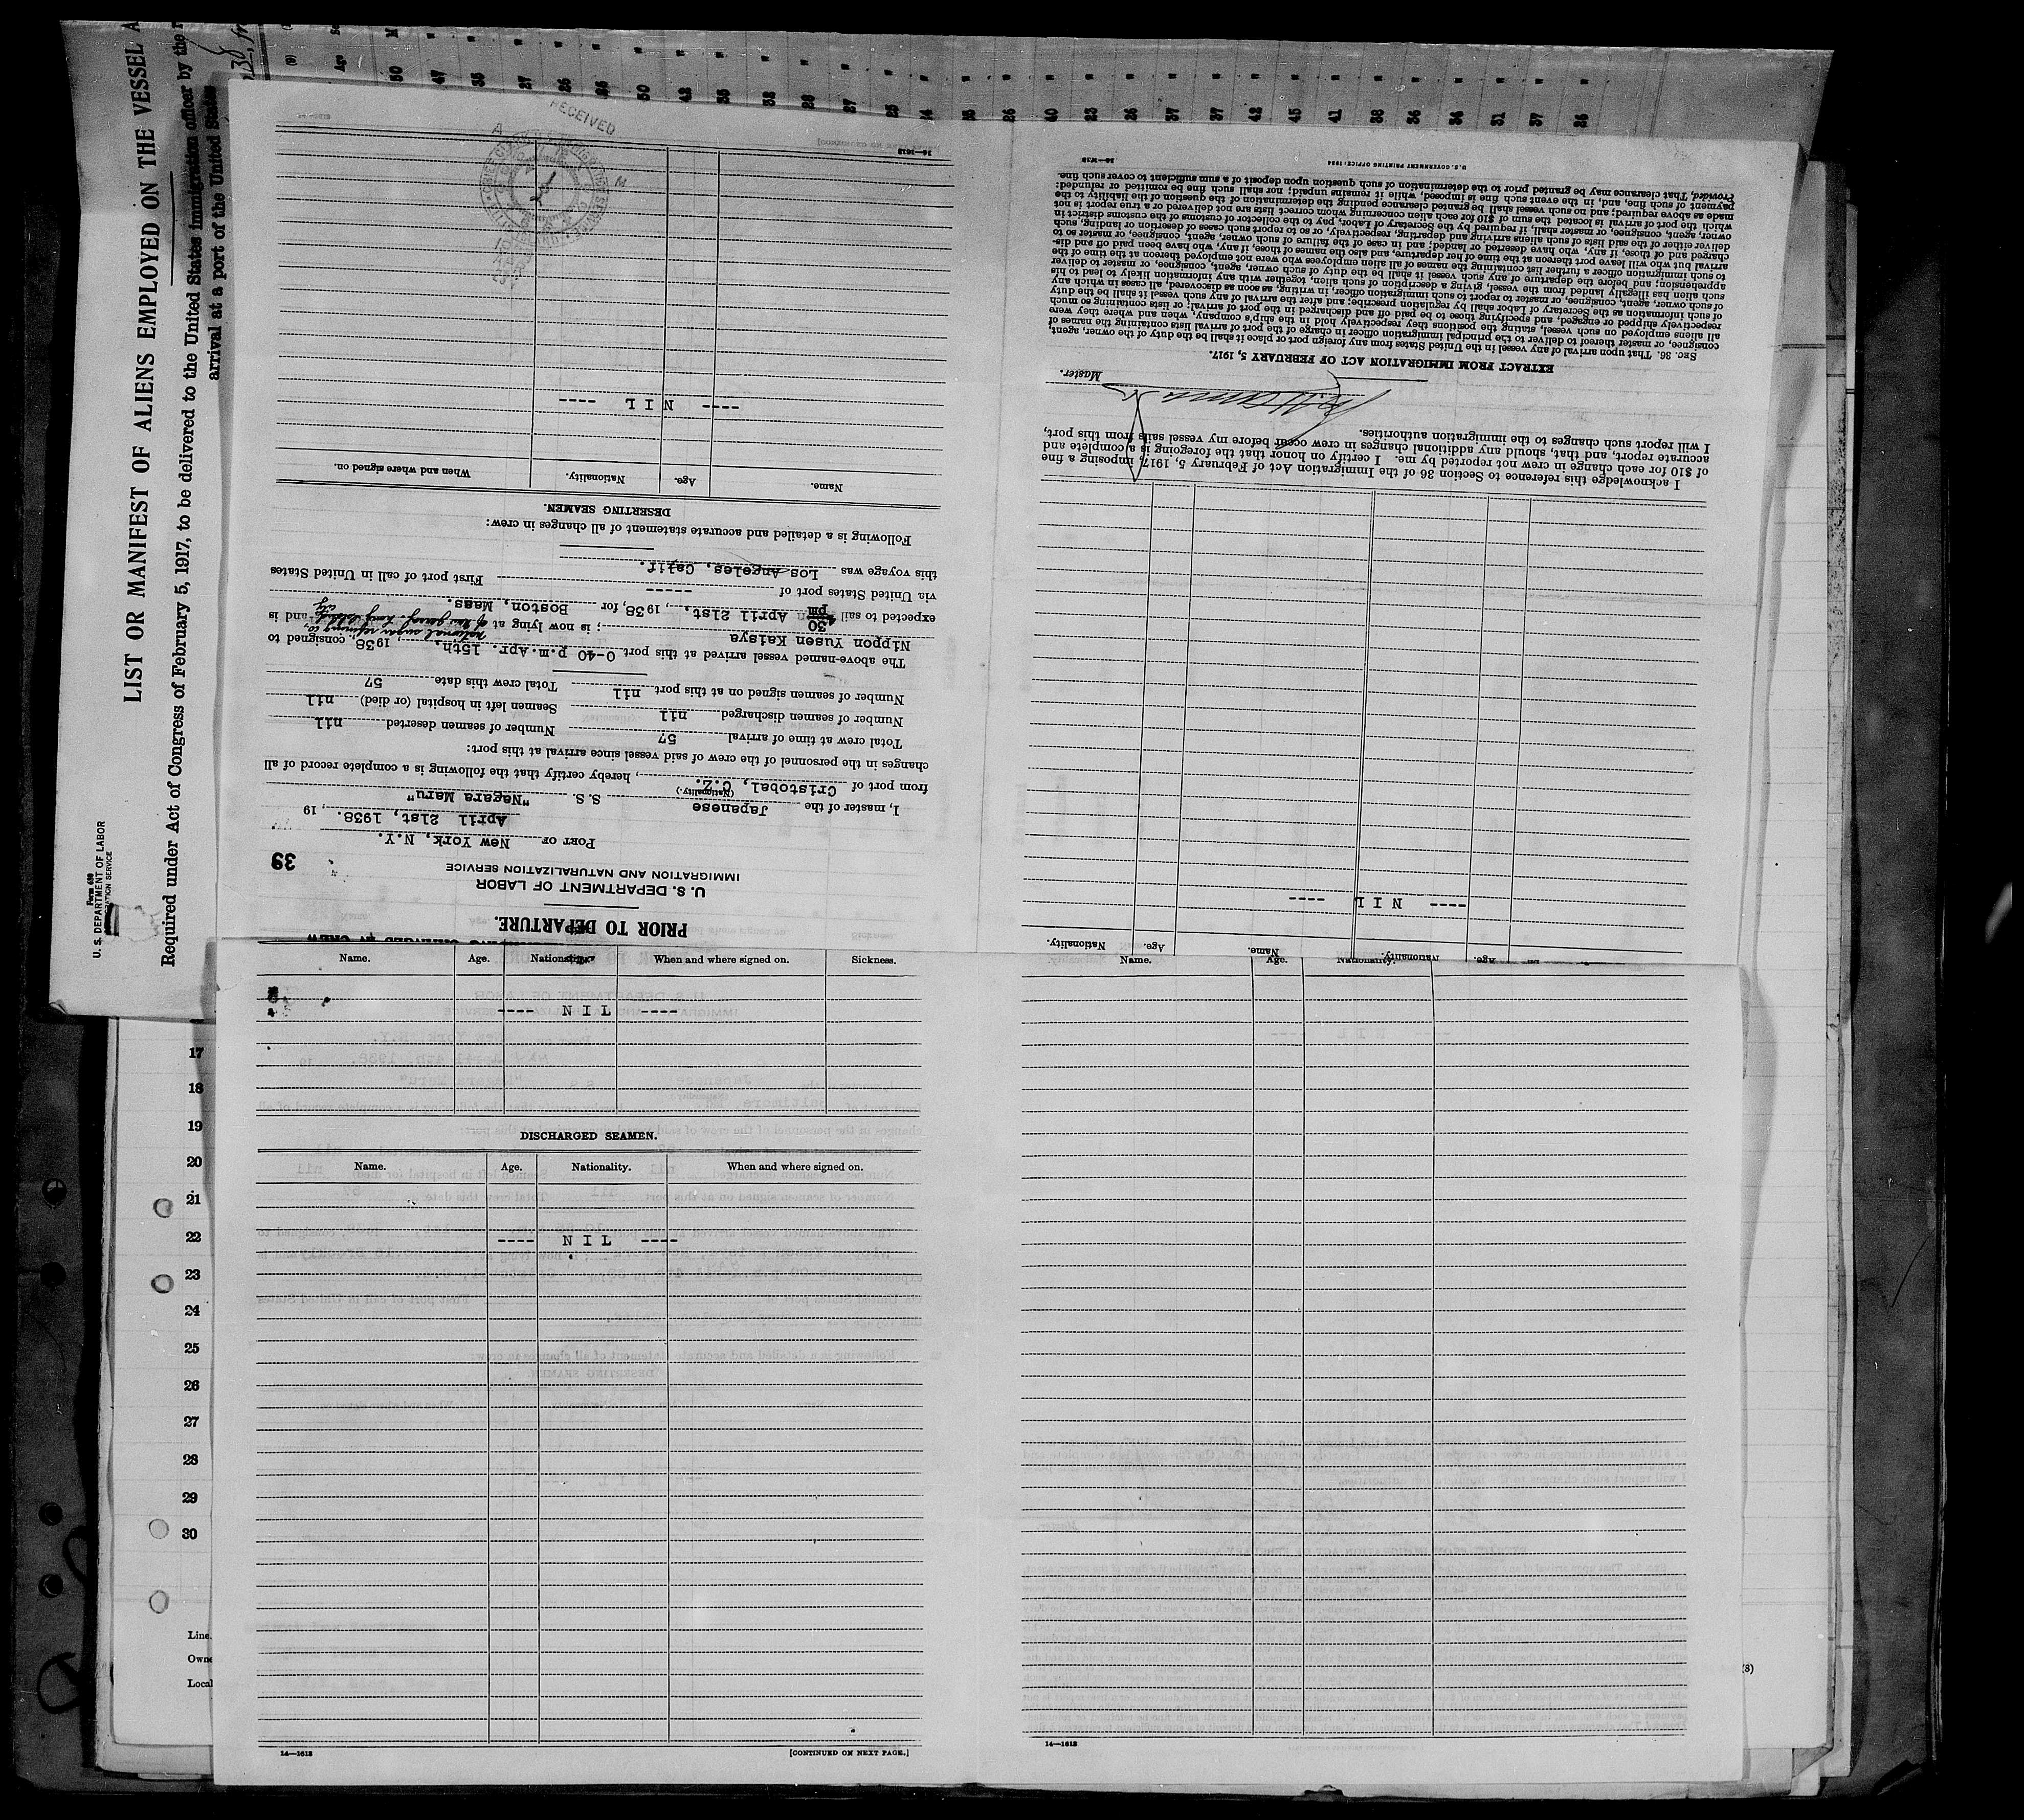 Form 680
U. S. DEPARTMENT OF LABOR
IMMIGRATION SERVICE
LIST OR MANIFEST OF ALIENS EMPLOYED ON THE VESSEL A
Required under Act of Congress of February 5, 1917, to be delivered to the United States immigration officer by the
arrival at a port of the United States
(9)
Age
50
47
35
27
26
26
30
42
35
32
28
27
25
24
35
26
40
23
26
37
37
42
45
41
38
36
34
31
37
26
PRIOR TO DEPARTURE.
U. S. DEPARTMENT OF LABOR
IMMIGRATION AND NATURALIZATION SERVICE
39
PORT OF New York, N.Y.
April 21st, 1938. , 19
I, master of the Japanese S. S. "Nagara Maru"
(Nationality.)
from port of Cristobal, C.Z. , hereby certify that the following is a complete record of all
changes in the personnel of the crew of said vessel since arrival at this port:
Total crew at time of arrival 57 Number of seamen deserted nil
Number of seamen discharged nil Seamen left in hospital (or died) nil
Number of seamen signed on at this port nil Total crew this date 57
The above-named vessel arrived at this port 0-40 p.m. Apr. 15th, , 1938, consigned to
Nippon Yusen Kaisya ; is now lying at national sugar refining co of new jersey. Long Island City and is
expected to sail 30 pm April 21st, , 1938, for Boston, Mass.
via United States port of ----- First port of call in United States
this voyage was Los Angeles, Calif.
Following is a detailed and accurate statement of all changes in crew:
DESERTING SEAMEN.
Name. Age. Nationality. When and where signed on.
---- N I L ----
16—1612
RECEIVED
Nationality. Age. Name. Nationality. Age.
---- N I L ----
I acknowledge this reference to Section 36 of the Immigration Act of February 5, 1917, imposing a fine
of $10 for each change in crew not reported by me. I certify on honor that the foregoing is a complete and
accurate report, and that, should any additional changes in crew occur before my vessel sails from this port,
I will report such changes to the immigration authorities.
Master.
EXTRACT FROM IMMIGRATION ACT OF FEBRUARY 5, 1917.
SEC. 36. That upon arrival of any vessel in the United States from any foreign port or place it shall be the duty of the owner, agent,
consignee, or master thereof to deliver to the principal immigration officer in charge of the port of arrival lists containing the names of
all aliens employed on such vessel, stating the positions they respectively hold in the ship's company, when and where they were
respectively shipped or engaged, and specifying those to be paid off and discharged in the port of arrival; or lists containing so much
of such information as the Secretary of Labor shall by regulation prescribe; and after the arrival of any such vessel it shall be the duty
of such owner, agent, consignee, or master to report to such immigration officer, in writing, as soon as discovered, all cases in which any
such alien has illegally landed from the vessel, giving a description of such alien, together with any information likely to lead to his
apprehension; and before the departure of any such vessel it shall be the duty of such owner, agent, consignee, or master to deliver
to such immigration officer a further list containing the names of all alien employees who were not employed thereon at the time of the
arrival but who will leave port thereon at the time of her departure, and also the names of those, if any, who have been paid off and dis-
charged and of those, if any, who have deserted or landed; and in case of the failure of such owner, agent, consignee, or master so to
deliver either of the said lists of such aliens arriving and departing, respectively, or so to report such cases of desertion or landing, such
owner, agent, consignee, or master shall, if required by the Secretary of Labor, pay to the collector of customs of the customs district in
which the port of arrival is located the sum of $10 for each alien concerning whom correct lists are not delivered or a true report is not
made as above required; and no such vessel shall be granted clearance pending the determination of the question of the liability to the
payment of such fine, and, in the event such fine is imposed, while it remains unpaid; nor shall such fine be remitted or refunded:
Provided, That clearance may be granted prior to the determination of such question upon deposit of a sum sufficient to cover such fine.
U. S. GOVERNMENT PRINTING OFFICE: 1934
Name. Age. Nationality. When and where signed on. Sickness.
---- N I L ----
DISCHARGED SEAMEN.
Name. Age. Nationality. When and where signed on.
---- N I L ----
14—1612 [CONTINUED ON NEXT PAGE.]
Name. Age. Nationality.
14—1612
17
18
19
20
21
22
23
24
25
26
27
28
29
30
Line.
Owne
Local
(8)